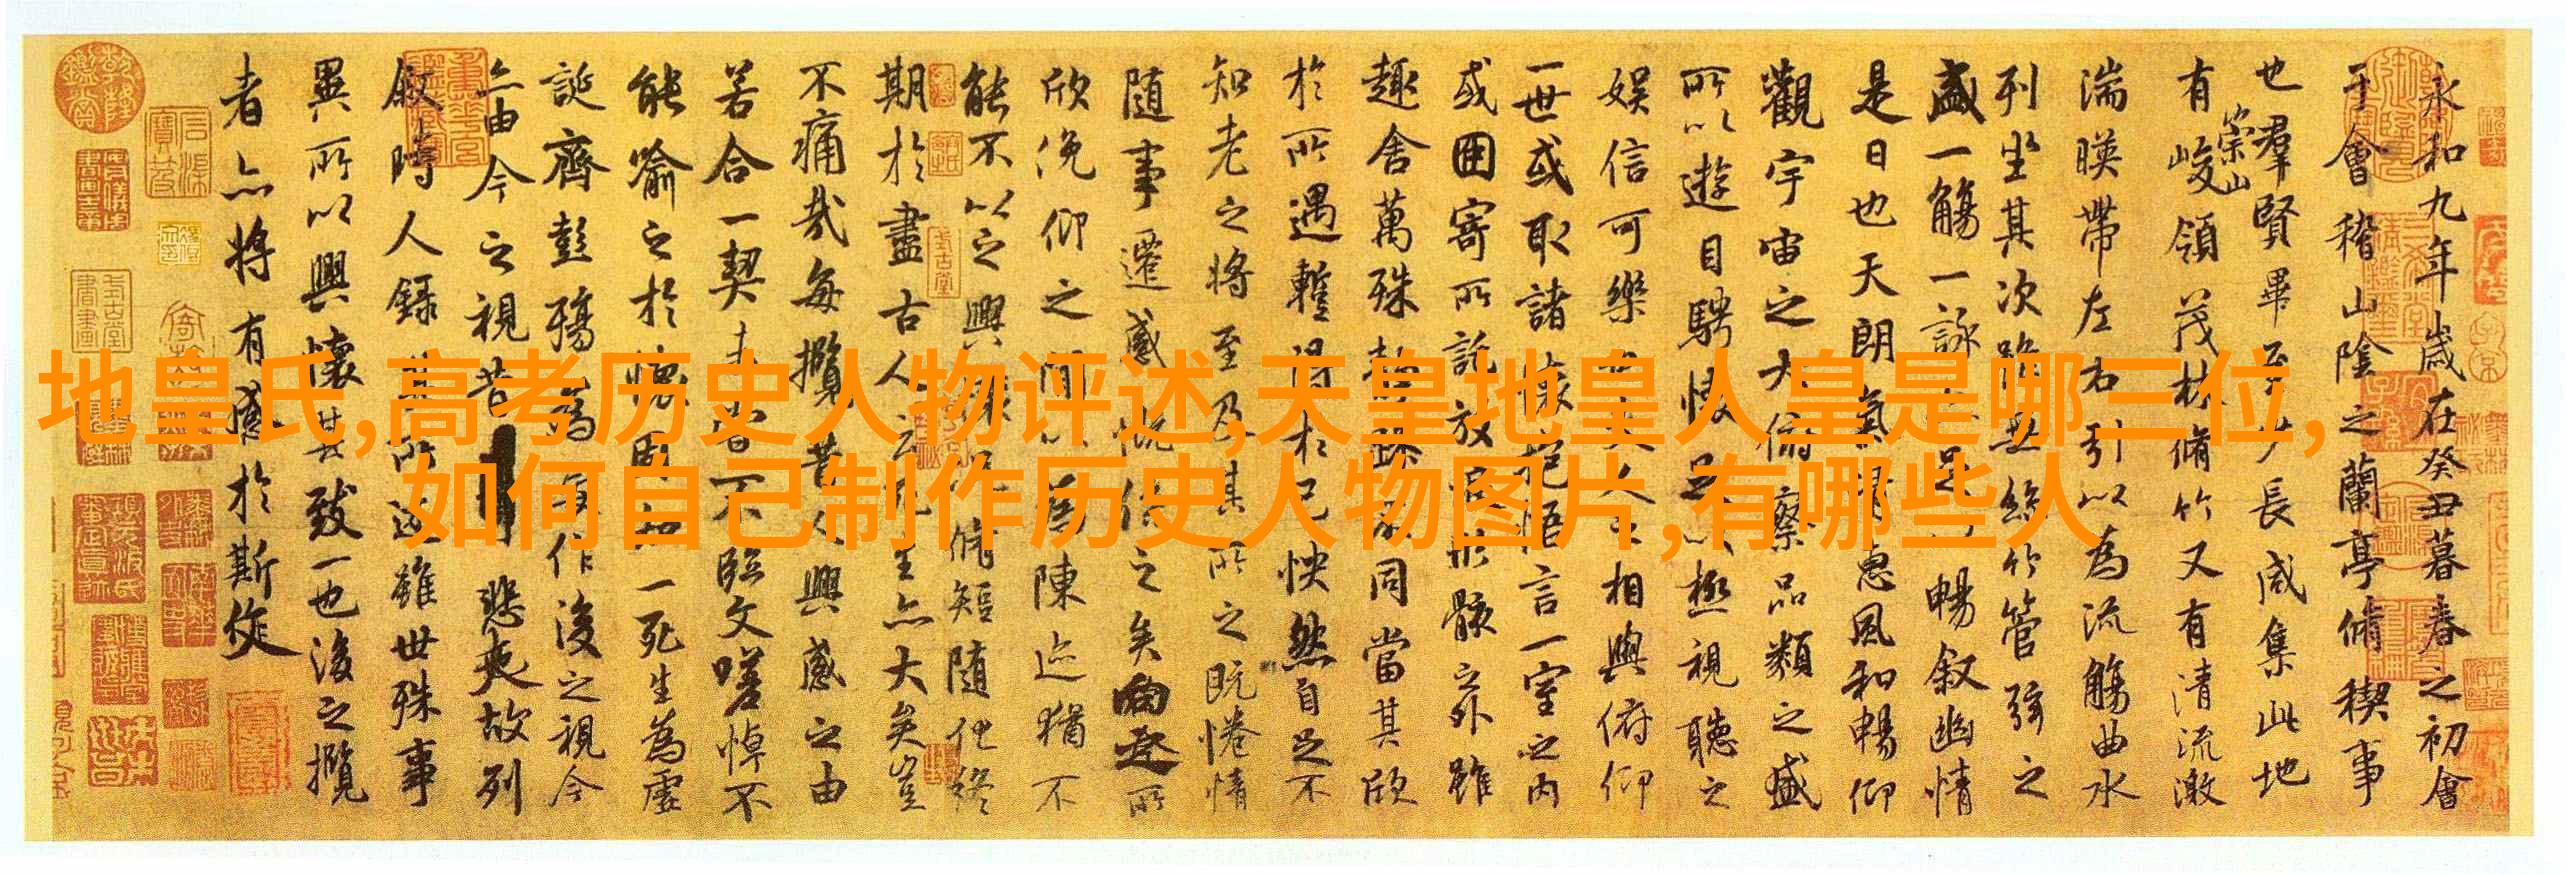 地皇氏,高考历史人物评述,天皇地皇人皇是哪三位,
如何自己制作历史人物图片,有哪些人
永和九年歲在癸丑暮春之初會
于會稽山陰之蘭亭脩稧事
也羣賢畢至少長咸集此地
有崇山峻領茂林脩竹又有清流激
湍暎帶左右引以為流觴曲水
列坐其次雖無絲竹管弦之
盛一觴一詠亦足以暢敘幽情
是日也天朗氣清惠風和暢仰
觀宇宙之大俯察品類之盛
所以遊目騁懷足以極視聽之
娛信可樂也夫人之相與俯仰
一世或取諸懷抱悟言一室之內
或因寄所託放浪形骸之外雖
趣舍萬殊靜躁不同當其欣
於所遇蹔得於己怏然自足不
知老之將至及其所之既惓情
隨事遷感慨係之矣向之所
欣俛仰之閒以為陳迹猶不
能不以之興懷況脩短隨化終
期於盡古人云死生亦大矣豈
不痛哉每攬昔人興感之由
若合一契未嘗不臨文嗟悼不
能喻之於懷固知一死生為虛
誕齊彭殤為妄作後之視今
亦由今之視昔悲夫故列
敘時人錄其所述雖世殊事
異所以興懷其致一也後之攬
者亦將有感於斯文